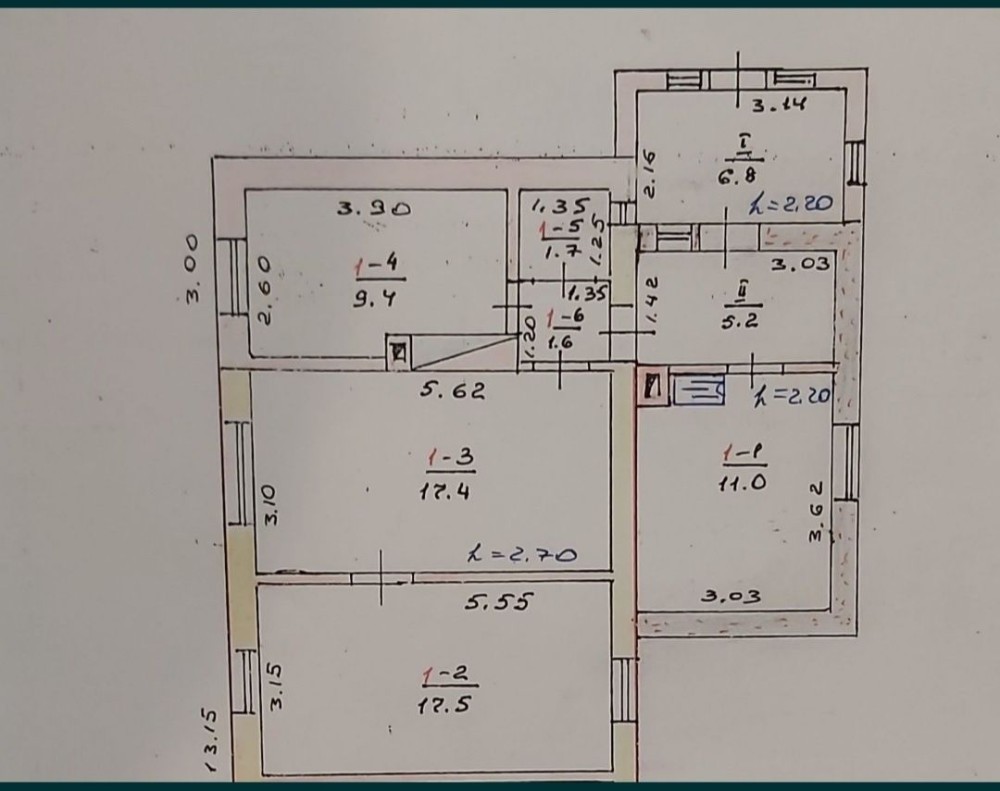 3.14
I
6.8
2.16
h=2.20
3.90
1.35
1-5
1.7
1.25
3.00
2.60
1-4
9.4
1.35
1-6
1.6
1.20
1.42
3.03
II
5.2
5.62
h=2.20
1-3
17.4
3.10
h=2.70
1-1
11.0
3.62
3.03
5.55
1-2
17.5
3.15
13.15